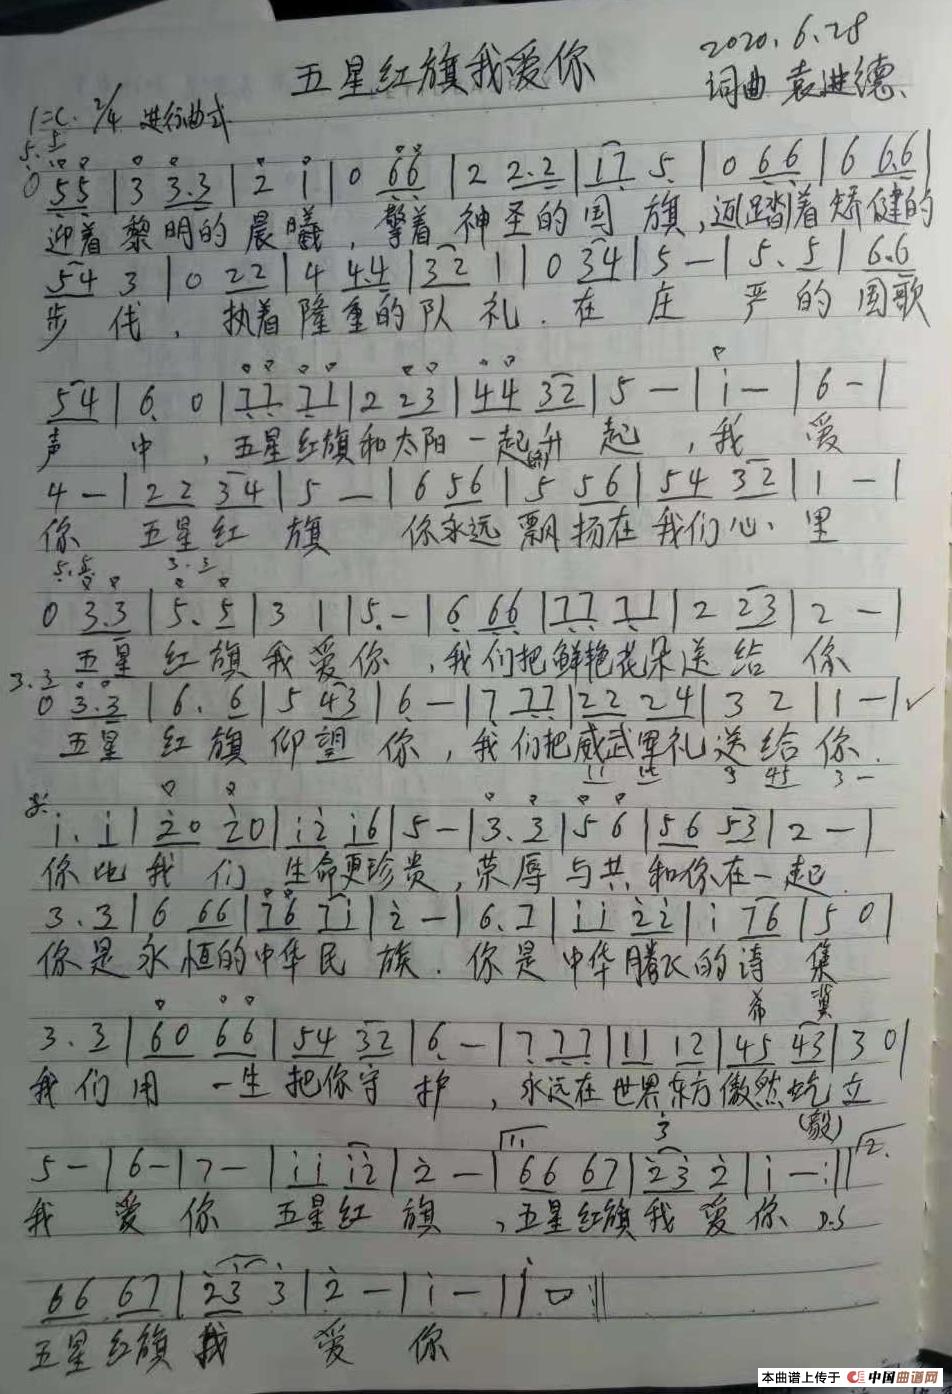 五星红旗我爱你
2020.6.28
词曲 袁进德
1=C 2/4 进行曲式
0 55 | 3 3.3 | 2 i | 0 66 | 2 2.2 | 17 5 | 0 66 | 6 6.6 |
迎着黎明的晨曦，擎着神圣的国旗，迈踏着矫健的
54 3 | 0 22 | 4 4.4 | 32 1 | 0 34 | 5 — | 5. 5 | 6.6
步伐，执着隆重的队礼．在庄严的国歌
54 | 6 0 | 77 71 | 2 23 | 44 32 | 5 — | i — | 6 — |
声中，五星红旗和太阳一起升起，我爱
4 — | 22 34 | 5 — | 6 56 | 5 56 | 54 32 | 1 — |
你 五星红旗 你永远飘扬在我们心里
5.5 3.3
0 3.3 | 5. 5 | 3 1 | 5. — | 6 66 | 77 71 | 2 23 | 2 — |
五星红旗我爱你，我们把鲜艳花朵送给你
3.3
0 3.3 | 6. 6 | 5 43 | 6 — | 7 77 | 22 24 | 3 2 | 1 — |
五星红旗仰望你，我们把威武军礼送给你．
i. i | 20 20 | i2 i6 | 5 — | 3. 3 | 5 6 | 56 53 | 2 — |
你比我们生命更珍贵，荣辱与共和你在一起．
3. 3 | 6 66 | 76 7i | 2 — | 6. 7 | ii 22 | i 76 | 5 0 |
你是永恒的中华民族．你是中华腾飞的诗集
希冀
3. 3 | 60 66 | 54 32 | 6 — | 7 77 | 11 12 | 45 43 | 3 0 |
我们用一生把你守护，永远在世界东方傲然屹立
(毅)
5 — | 6 — | 7 — | ii i2 | 2 — | 66 67 | 23 2 | i — :||
我爱你 五星红旗，五星红旗我爱你 D.S
66 67 | 23 3 | 2 — | i — | i 0 ||
五星红旗我爱你
本曲谱上传于 中国曲谱网